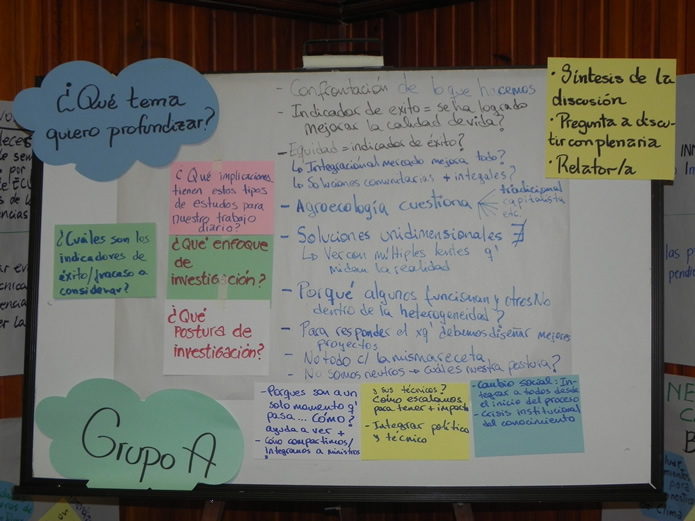 ¿Qué tema
quiero profundizar?
- Confrontación de lo que hacemos
- Indicador de exito = se ha logrado
mejorar la calidad de vida?
- Equidad = indicador de éxito?
↳ Integración al mercado mejora todo?
↳ Soluciones comunitarias + integales?
- Agroecología cuestiona
tradicional
capitalista
etc.
- Soluciones unidimensionales ∄
↳ Ver con múltiples lentes q'
midan la realidad
- Porqué algunos funcionan y otros No
dentro de la heterogeneidad?
- Para responder el xq' debemos diseñar mejores
proyectos
- No todo c/ la misma receta
- No somos neutros → cuál es nuestra postura?
• Síntesis de la
discusión
• Pregunta a discu-
tir con plenaria
• Relator/a
¿Qué implicaciones
tienen estos tipos
de estudios para
nuestro trabajo
diario?
¿Cuáles son los
indicadores de
éxito/fracaso a
considerar?
¿Qué enfoque
de
investigación?
¿Qué
Postura de
investigación?
Grupo A
- Porques son a un
solo momento q'
pasa... Cómo?
ayuda a ver +
- Cómo compartimos/
Integramos a ministros
sus técnicos?
Cómo escalamos,
para tener + impacto
- Integrar político
y técnico
- Cambio social: In-
tegrar a todos desde
el inicio del proceso
- Crisis institucional
del conocimiento